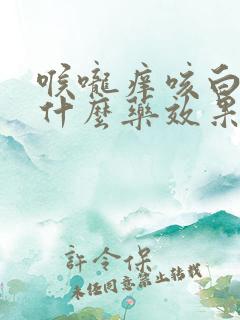 喉嚨癢咳白
什麼藥效果
許令保
未經同意禁止轉載